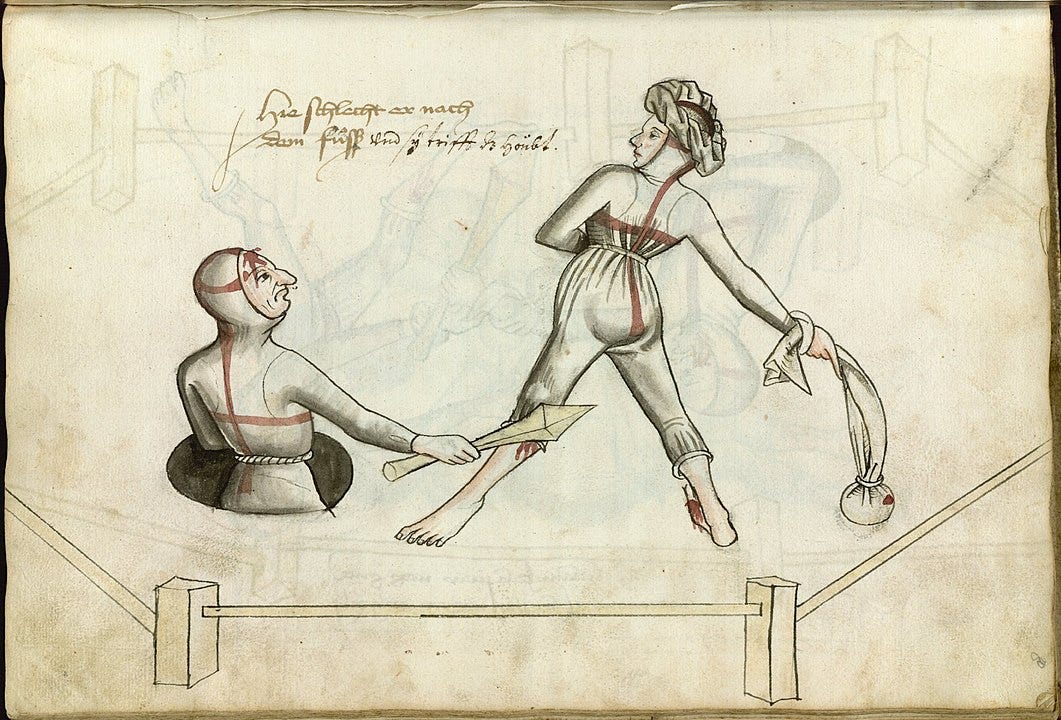 Hie schlecht er nach
dem fůß vnd sy trifft dz höubt.